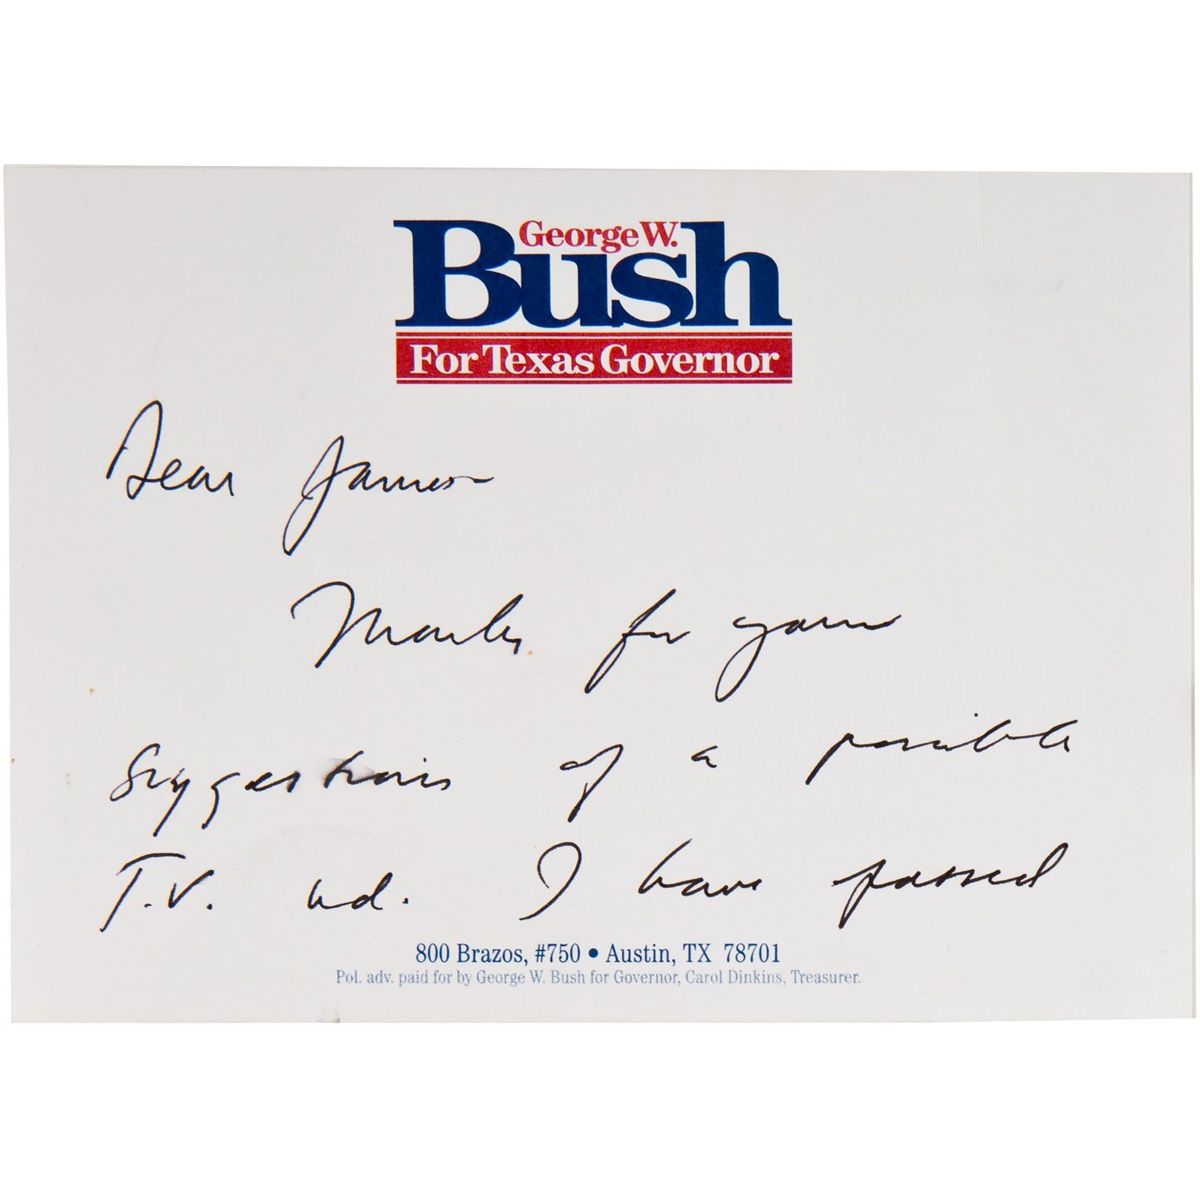 George W.
Bush
For Texas Governor
Dear James
Thanks for your
suggestions of a possible
T.V. ad. I have passed
800 Brazos, #750 • Austin, TX 78701
Pol. adv. paid for by George W. Bush for Governor, Carol Dinkins, Treasurer.